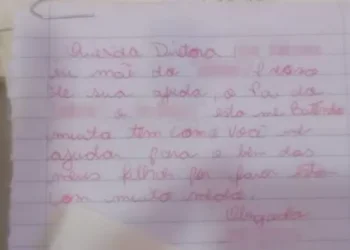 Querida Diãora
eu mãe da Preciso
de sua ajuda, o Pai da
e esta me Batendo
muito tem como você me
ajudar para o bem dos
meus filhos por favor estou
com muito medo.